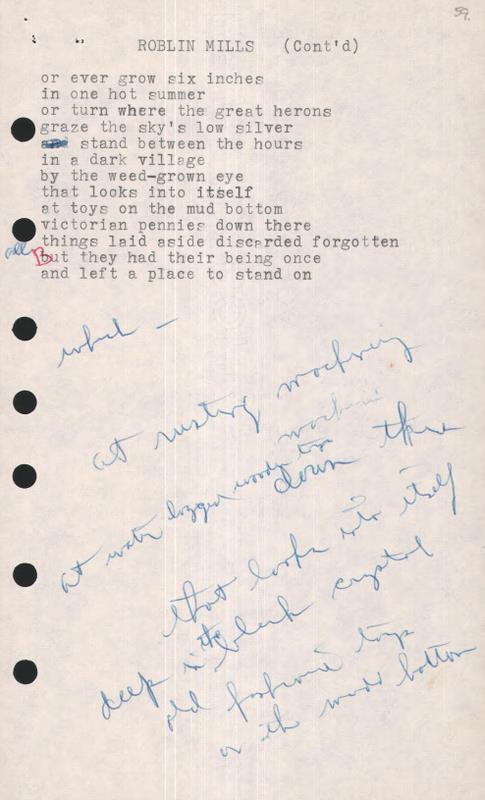 59.
ROBLIN MILLS (Cont'd)
or ever grow six inches
in one hot summer
or turn where the great herons
graze the sky's low silver
and stand between the hours
in a dark village
by the weed-grown eye
that looks into itself
at toys on the mud bottom
victorian pennies down there
all things laid aside discarded forgotten
But they had their being once
and left a place to stand on
which —
at rusting machinery
machine
at water logged wooden toys
down there
that looks into itself
deep in its black crystal
old fashioned toys
on the mud bottom